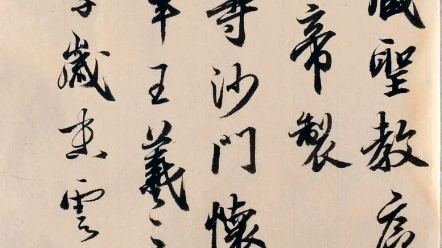 藏聖教序
帝製
寺沙門懷
軍王羲之
歲